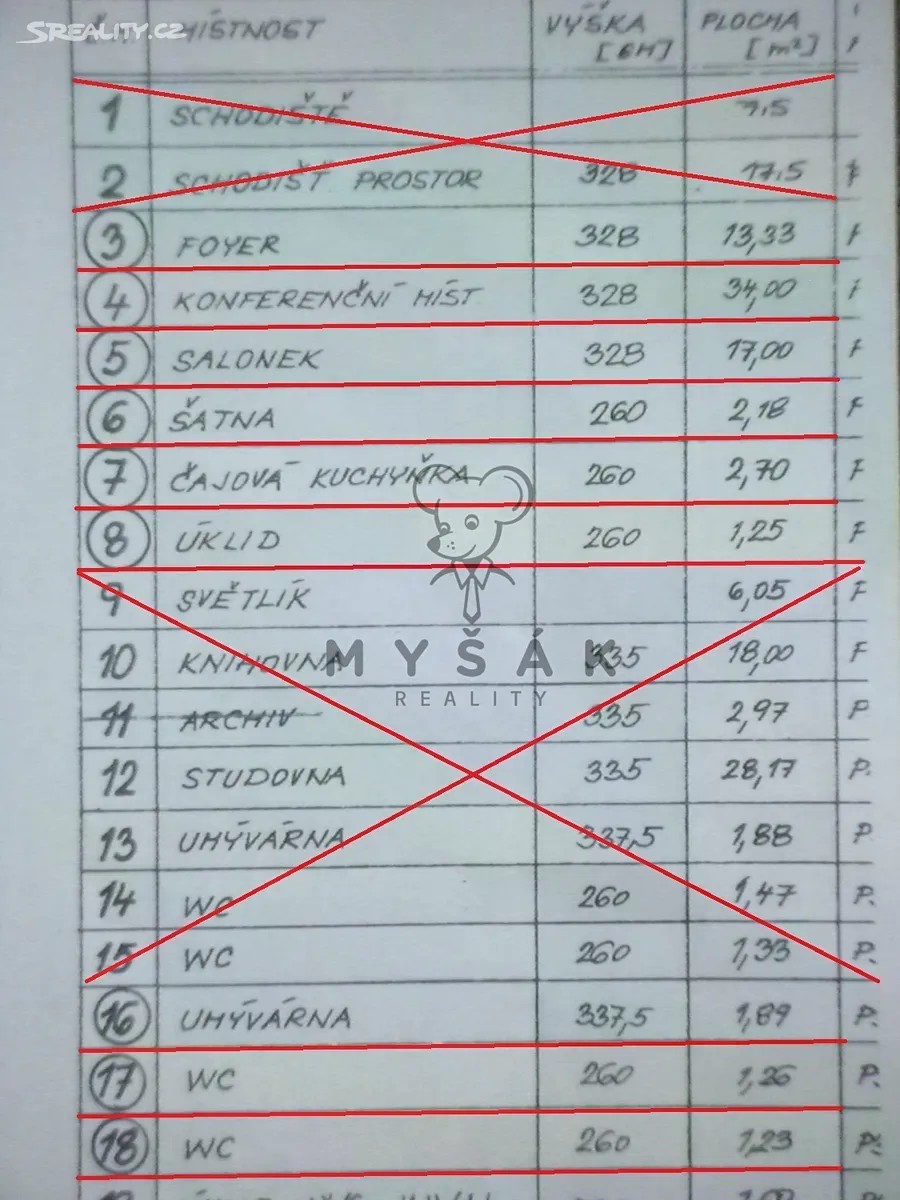 SREALITY.CZ
MÍSTNOST VÝŠKA PLOCHA
[CM] [m²]
1 SCHODIŠTĚ 7,5
2 SCHODIŠŤ PROSTOR 328 17,5
3 FOYER 328 13,33 F
4 KONFERENČNÍ MÍST 328 34,00
5 SALONEK 328 17,00 F
6 ŠATNA 260 2,18 F
7 ČAJOVÁ KUCHYŇKA 260 2,70 F
8 ÚKLID 260 1,25 F
9 SVĚTLÍK 6,05 F
10 KNIHOVNA 335 18,00 F
MYŠÁK
REALITY
11 ARCHIV 335 2,97 P
12 STUDOVNA 335 28,17 P.
13 UMÝVÁRNA 337,5 1,88 P
14 WC 260 1,47 P.
15 WC 260 1,33 P.
16 UMÝVÁRNA 337,5 1,89 P.
17 WC 260 1,26 P.
18 WC 260 1,23 P.